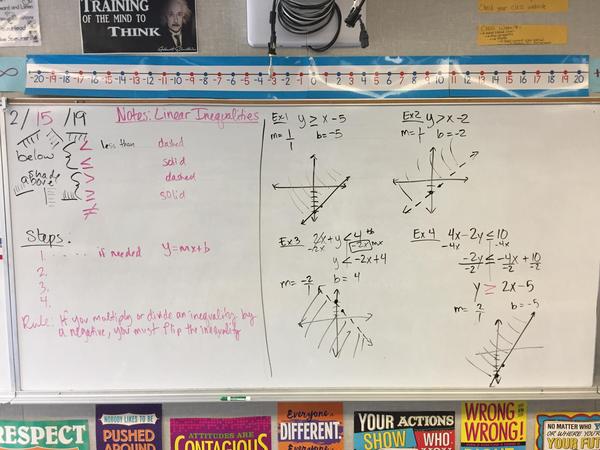 TRAINING
OF THE MIND TO
THINK
-20 -19 -18 -17 -16 -15 -14 -13 -12 -11 -10 -9 -8 -7 -6 -5 -4 -3 -2 -1 0 1 2 3 4 5 6 7 8 9 10 11 12 13 14 15 16 17 18 19 20
2/15/19
Notes: Linear Inequalities
below
shade
above
< less than dashed
≤ solid
> dashed
≥ solid
≠
Steps:
1. ..... if needed y=mx+b
2.
3.
4.
Rule: If you multiply or divide an inequality by
a negative, you must flip the inequality
Ex.1 y ≥ x - 5
m = 1/1 b = -5
Ex2 y > x - 2
m = 1 b = -2
Ex 3 2x + y < 4
-2x -2x mx
y < -2x + 4
m = -2/1 b = 4
Ex 4 4x - 2y ≤ 10
-4x -4x
-2y/-2 ≤ -4x/-2 + 10/-2
y ≥ 2x - 5
m = 2/1 b = -5
RESPECT
NOBODY LIKES TO BE
PUSHED
AROUND
ATTITUDES ARE
CONTAGIOUS
Everyone is
DIFFERENT.
Everyone
YOUR ACTIONS
SHOW WHO
WRONG
WRONG!
NO MATTER WHO
OR WHERE YOU'RE
YOUR FUT